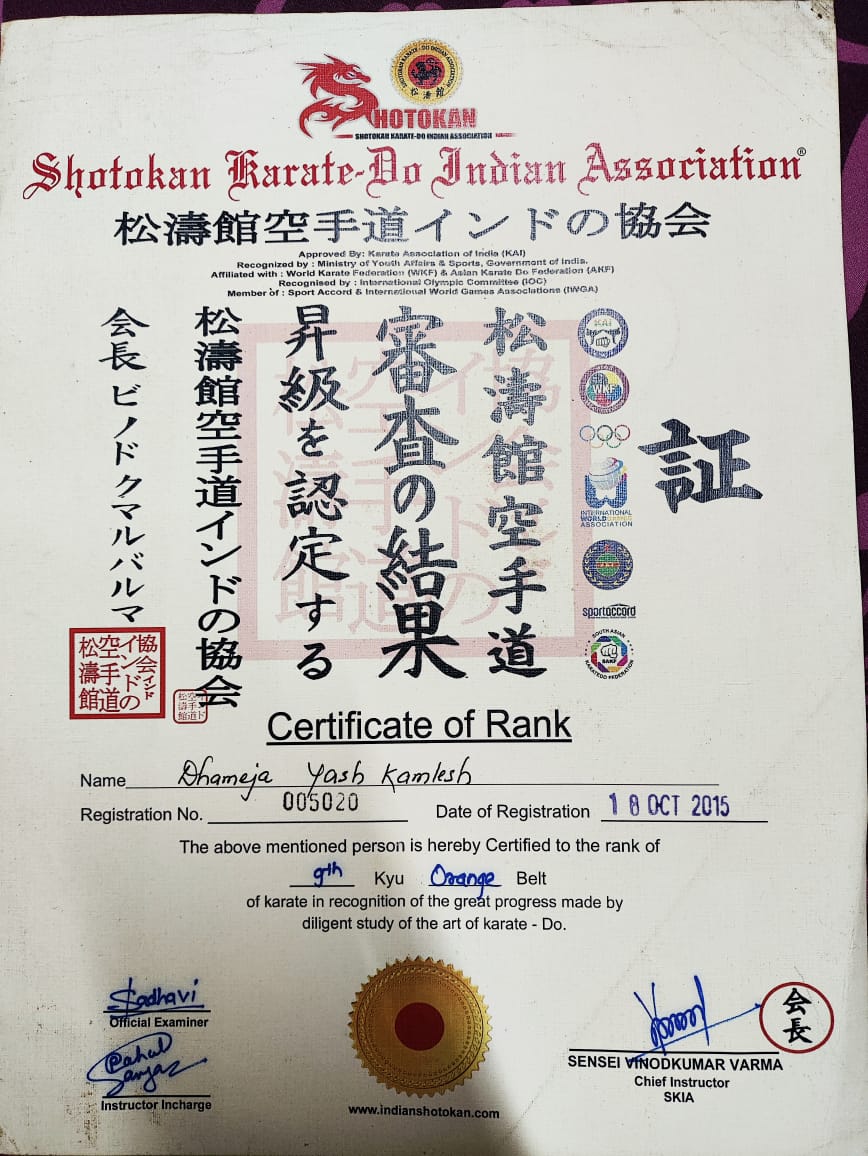 SHOTOKAN KARATE-DO INDIAN ASSOCIATION
松濤館
SHOTOKAN
SHOTOKAN KARATE-DO INDIAN ASSOCIATION
Shotokan Karate-Do Indian Association®
松濤館空手道インドの協会
Approved By: Karate Association of India (KAI)
Recognized by : Ministry of Youth Affairs & Sports, Government of India.
Affiliated with : World Karate Federation (WKF) & Asian Karate Do Federation (AKF)
Recognised by : International Olympic Committee (IOC)
Member of : Sport Accord & International World Games Associations (IWGA)
証
松濤館空手道
審査の結果
昇級を認定する
松濤館空手道インドの協会
会長 ビノド クマル バルマ
KAI
WKF
INTERNATIONAL
WORLD GAMES
ASSOCIATION
sportaccord
SOUTH ASIAN
SAKF
KARATEDO FEDERATION
協会インド
インドの
空手道
松濤館
Certificate of Rank
Name Dhameja Yash Kamlesh
Registration No. 005020 Date of Registration 18 OCT 2015
The above mentioned person is hereby Certified to the rank of
9th Kyu Orange Belt
of karate in recognition of the great progress made by
diligent study of the art of karate - Do.
Sadhavi
Official Examiner
Instructor Incharge
www.indianshotokan.com
会長
SENSEI VINODKUMAR VARMA
Chief Instructor
SKIA